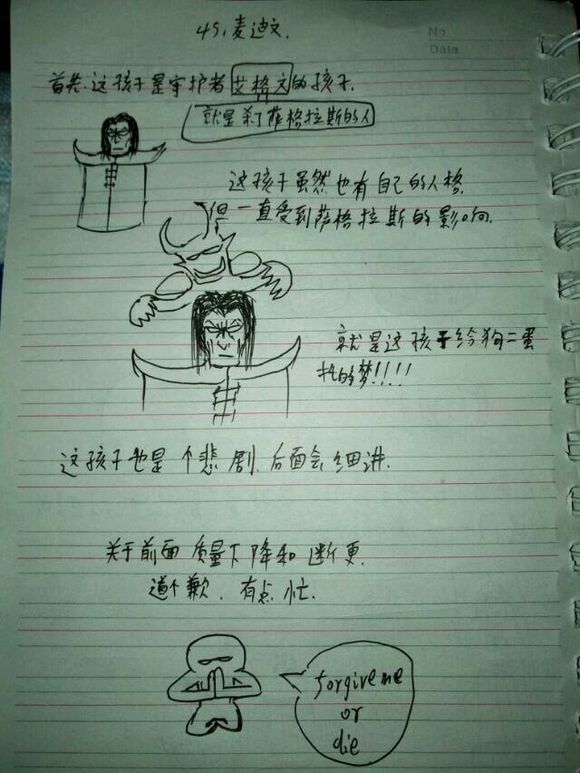 45、麦迪文.
No
Date
首先.这孩子是守护者艾格文的孩子.
就是杀了萨格拉斯的人
这孩子虽然也有自己的人格.
但一直受到萨格拉斯的影响.
就是这孩子给狗二蛋
托的梦!!!!
这孩子也是个悲剧.后面会细讲.
关于前面质量下降和断更.
道个歉.有点忙.
forgive me
or
die